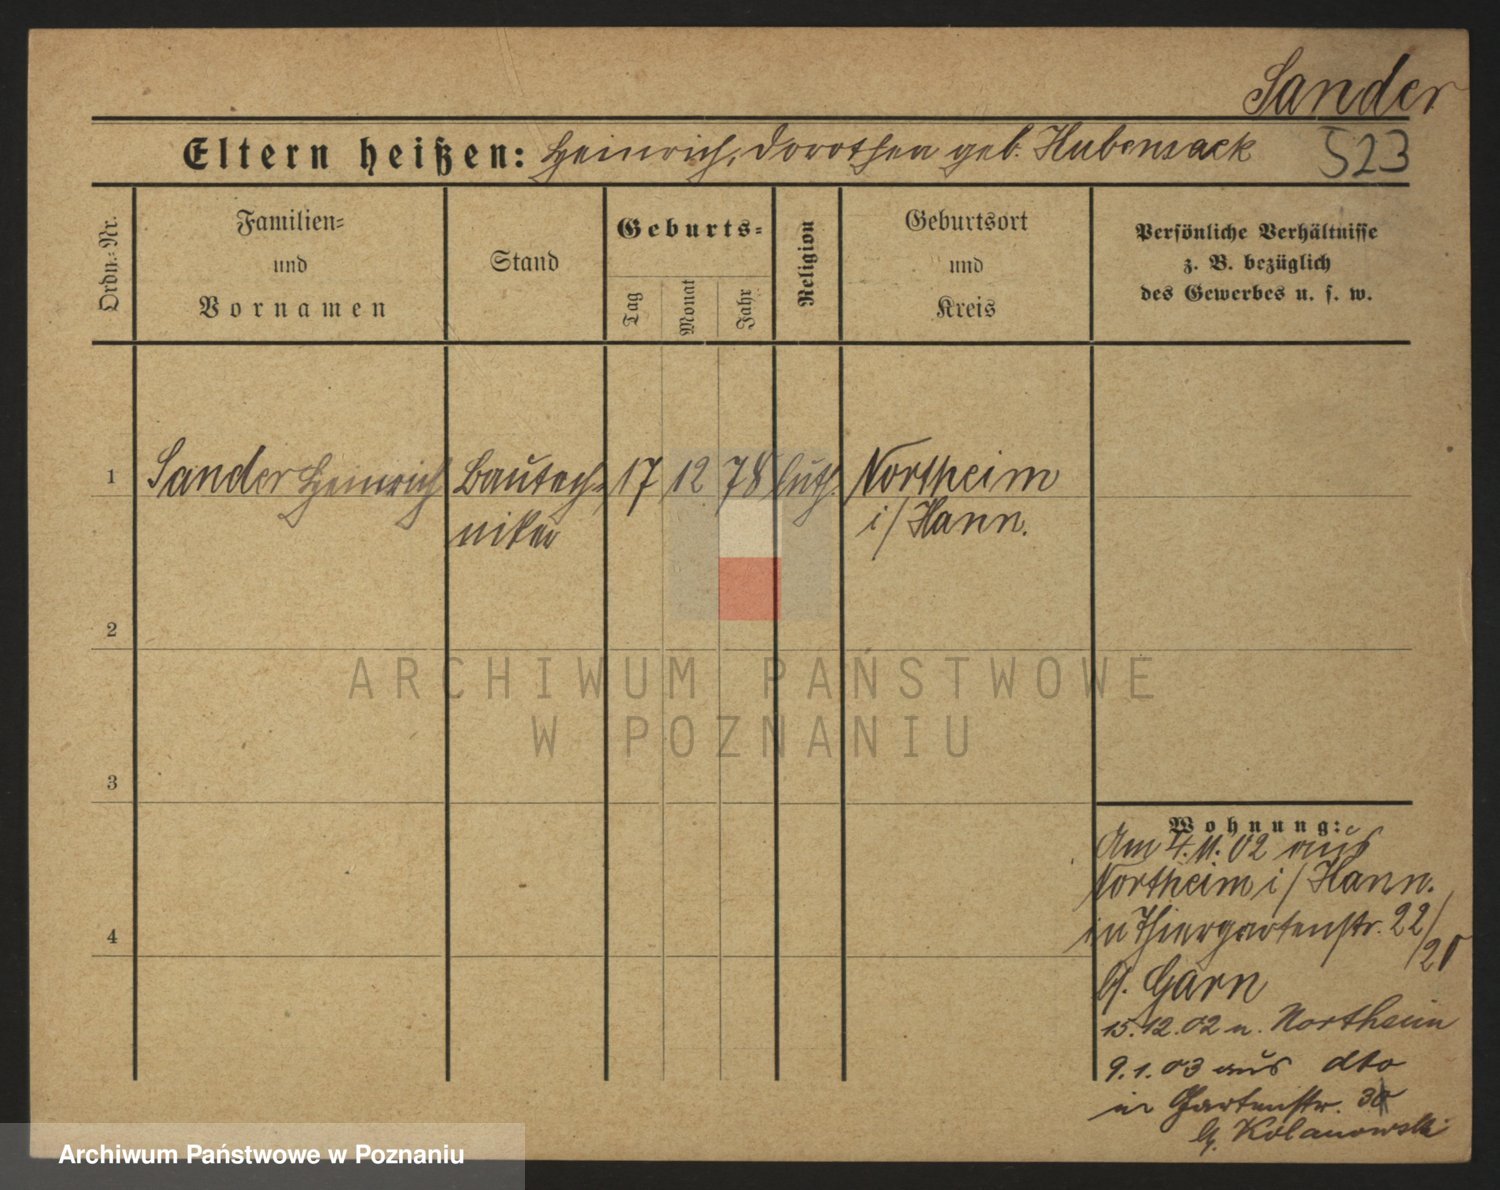 Sander
Eltern heißen: Heinrich, Dorothea geb. Hubensack
523
Ordn.-Nr.
Familien-
und
Vornamen
Stand
Geburts-
Tag
Monat
Jahr
Religion
Geburtsort
und
Kreis
Persönliche Verhältnisse
z. B. bezüglich
des Gewerbes u. s. w.
1 Sander Heinrich Bautech- 17 12 78 luth. Northeim
niker i/Hann.
2
3
4
ARCHIWUM PAŃSTWOWE
W POZNANIU
Wohnung:
Am 4.11.02 aus
Northeim i/Hann.
in Thiergartenstr. 22/
bei Garn
15.12.02 n. Northeim
9.1.03 aus dto
in Gartenstr.
b. Kolanowski
Archiwum Państwowe w Poznaniu